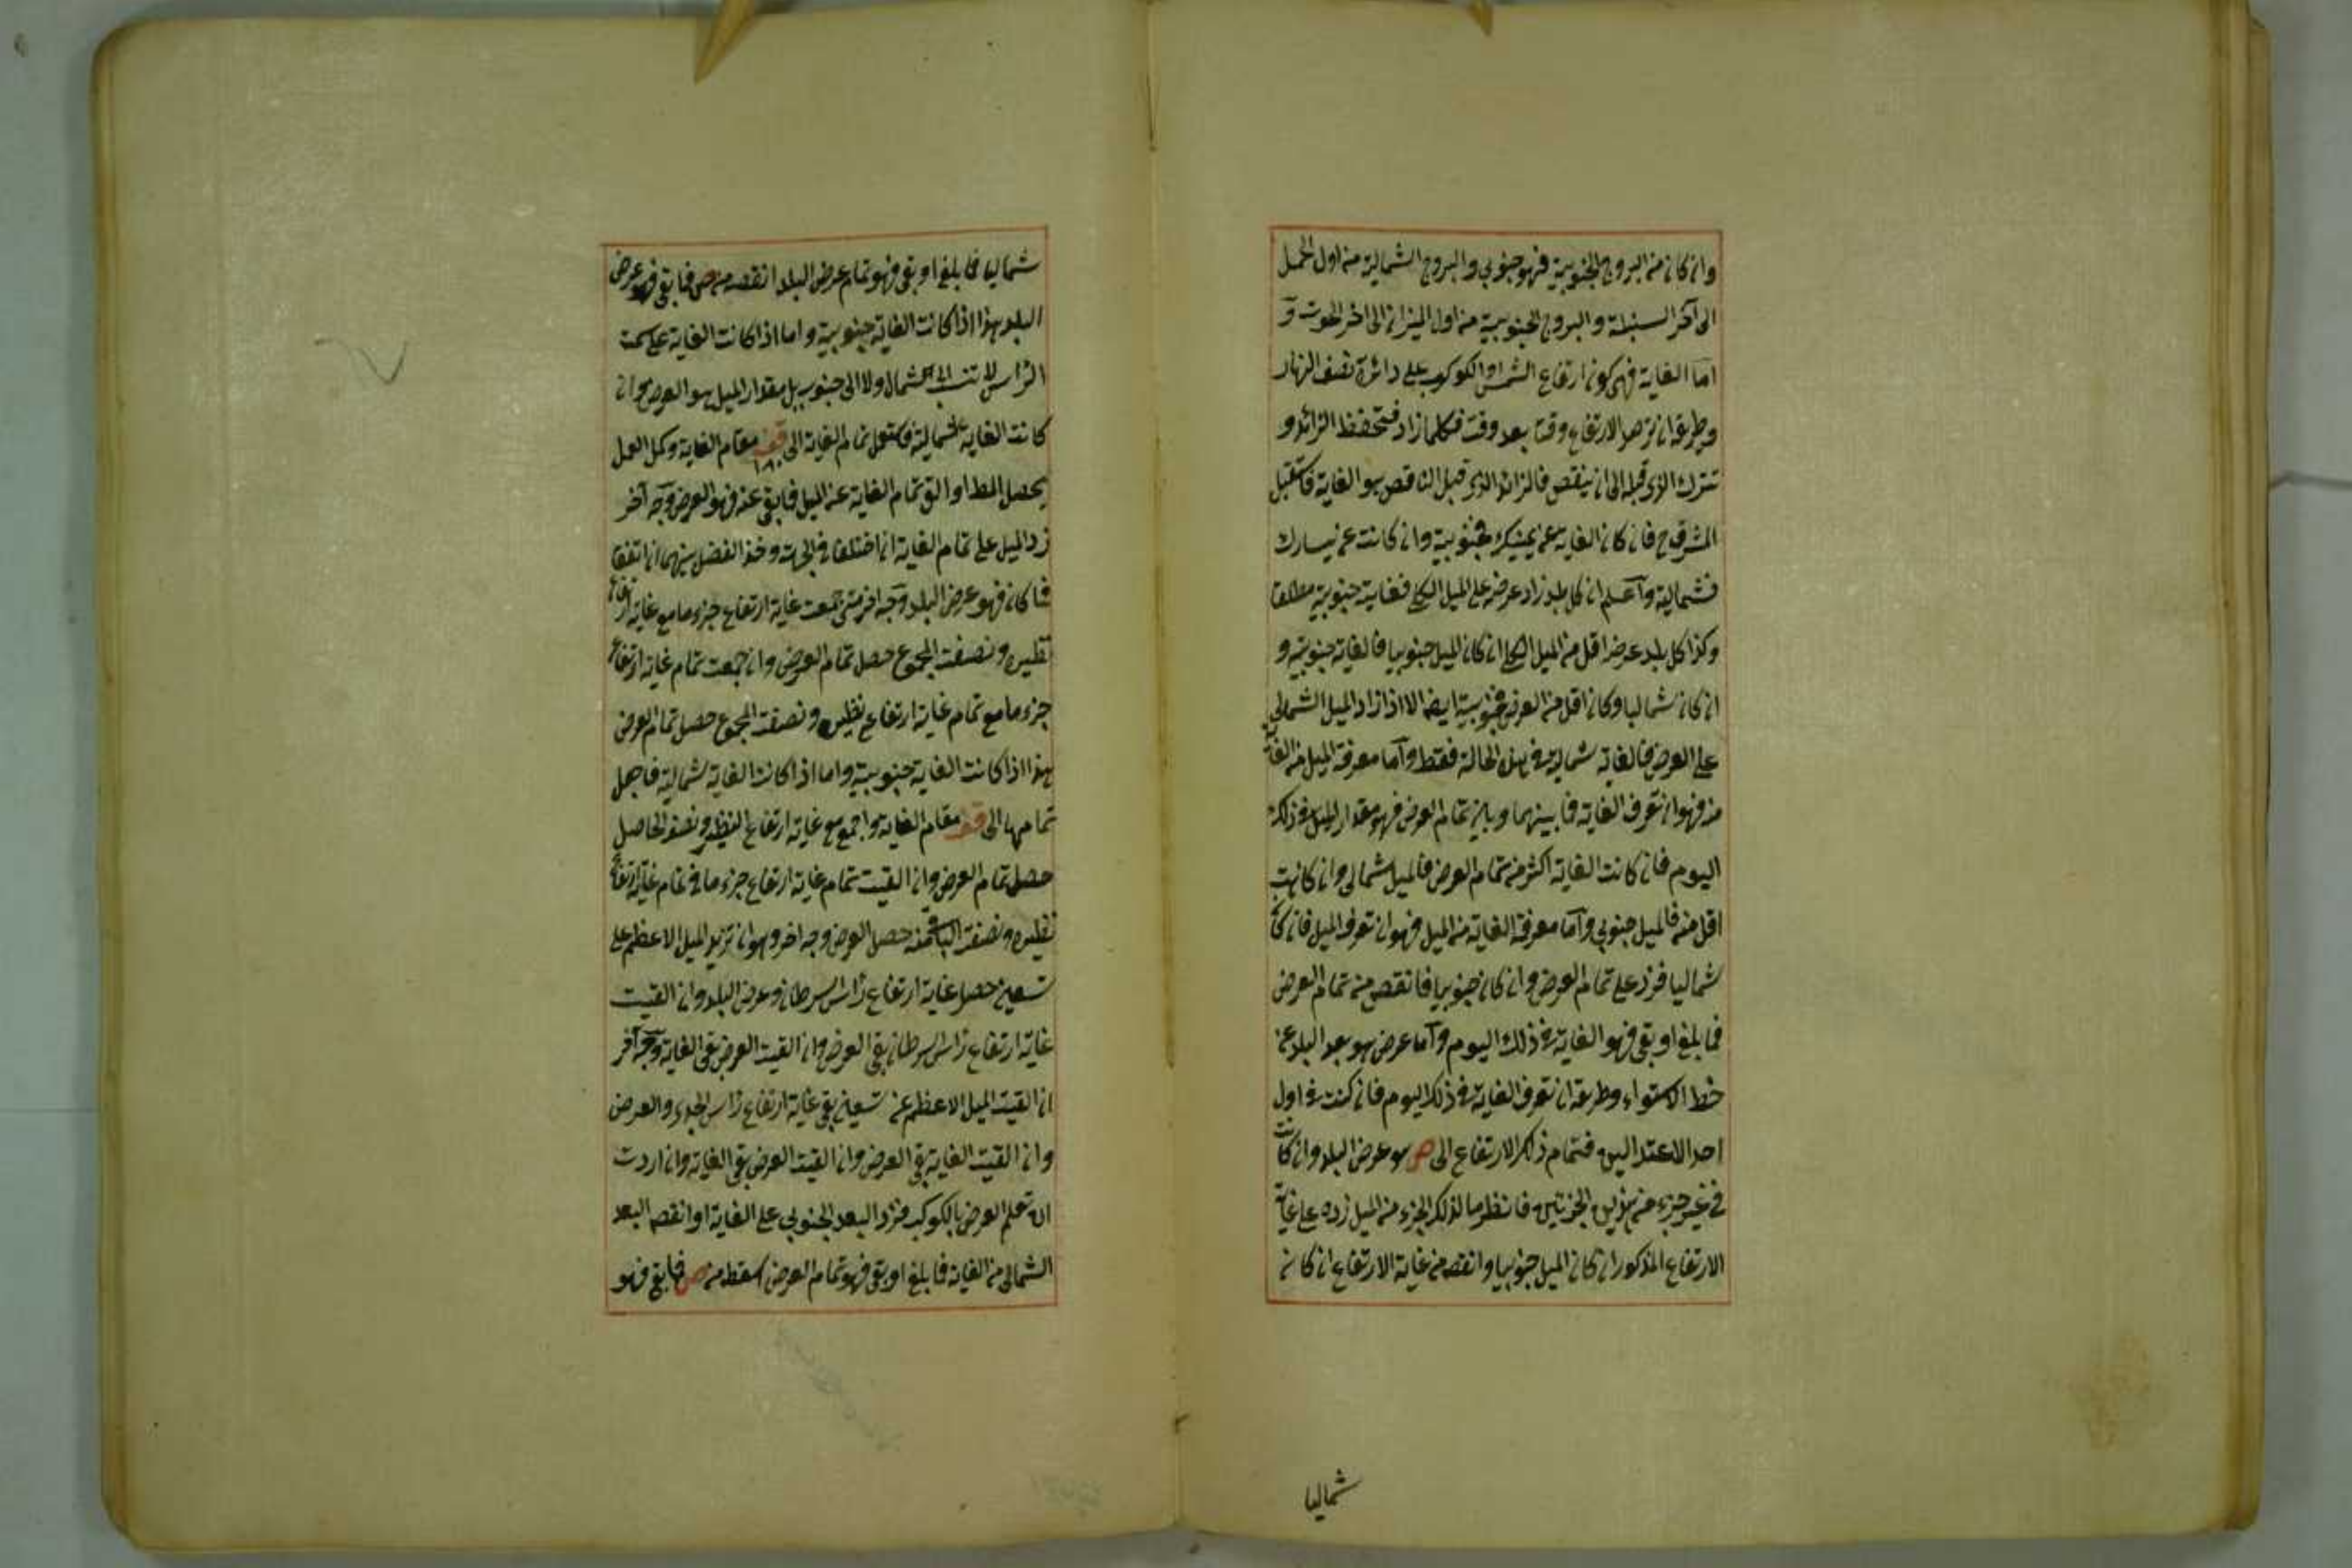 وان كان من البروج الجنوبية فهو جنوبي والبروج الشمالية من اول الحمل
الى آخر السنبلة والبروج الجنوبية من اول الميزان الى اخر الحوت و
اما الغاية فهى كون ارتفاع الشمس او الكوكب على دائرة نصف النهار
وطريقه ان ترصد الارتفاع وقتا بعد وقت فكلما زاد فتحفظ الزائد و
تترك الذى قبله الى ان ينقص فالزائد الذى قبل الناقص هو الغاية فاستقبل
المشرق ح فان كان الغاية عن يمينك فجنوبية وان كانت عن يسارك
فشمالية وآعلم ان كل بلد زاد عرضه على الميل الكلى فغايته جنوبية مطلقا
وكذا كل بلد عرضه اقل من الميل الكلى ان كان الميل جنوبيا فالغاية جنوبية و
ان كان شماليا وكان اقل من العرض فجنوبية ايضا الا اذا زاد الميل الشمالى
على العرض فالغاية شمالية فى هذه الحالة فقط وآما معرفة الميل من الغاية
منه فهو ان تعرف الغاية فما بينهما وبين تمام العرض فهو مقدار الميل فى ذلك
اليوم فان كانت الغاية اكثر من تمام العرض فالميل شمالى وان كانت
اقل منه فالميل جنوبي وآما معرفة الغاية من الميل فهو ان تعرف الميل فان كان
شماليا فزد على تمام العرض وان كان جنوبيا فانقصه من تمام العرض
فما بلغ او بقى فهو الغاية فى ذلك اليوم وآما عرض هو بعد البلد عن
خط الاستواء وطريقه ان تعرف الغاية فى ذلك اليوم فان كنت فى اول
احد الاعتدالين فتمام ذلك الارتفاع الى ص هو عرض البلد وان كانت
فى غير جزء من هذين الجزئين فانظر ما لذلك الجزء من الميل زده على غاية
الارتفاع المذكور ان كان الميل جنوبيا وانقصه من غاية الارتفاع ان كان
شماليا
شماليا فما بلغ او بقى فهو تمام عرض البلد انقصه من ص فما بقى فهو عرض
البلد هذا اذا كانت الغاية جنوبية واما اذا كانت الغاية على سمت
الرأس لا تنسب الى الشمال ولا الى جنوب بل مقدار الميل هو العرض وان
كانت الغاية شمالية فاستعمل تمام الغاية الى قف ١٨٠ مقام الغاية وكمل العمل
يحصل المط او الق تمام الغاية عن الميل فما بقى عنه فهو العرض وجه آخر
زد الميل على تمام الغاية ان اختلفا فى الجهة وخذ الفضل بينهما ان اتفقا
فما كان فهو عرض البلد وجه اخر متى جمعت غاية ارتفاع جزء ما مع غاية ارتفاع
نظيره ونصفت المجموع حصل تمام العرض وان جمعت تمام غاية ارتفاع
جزء ما مع تمام غاية ارتفاع نظيره ونصفت المجموع حصل تمام العرض
هذا اذا كانت الغاية جنوبية واما اذا كانت الغاية شمالية فاجعل
تمامها الى قف مقام الغاية واجمع مع غاية ارتفاع النظير ونصف الحاصل
حصل تمام العرض وان القيت تمام غاية ارتفاع جزء ما فى تمام غاية ارتفاع
نظيره ونصفت الباقى منه حصل العرض وجه اخر وهو ان تزيد الميل الاعظم على
تسعين حصل غاية ارتفاع رأس السرطان وعرض البلد وان القيت
غاية ارتفاع رأس السرطان بقى العرض وان القيت العرض بقى الغاية وجه آخر
ان القيت الميل الاعظم عن تسعين بقى غاية ارتفاع رأس الجدى والعرض
وان القيت الغاية بقى العرض وان القيت العرض بقى الغاية وان اردت
ان تعلم العرض بالكوكب فزد البعد الجنوبي على الغاية او انقص البعد
الشمالى من الغاية فما بلغ او بقى فهو تمام العرض اسقطه من ص فما بقى فهو